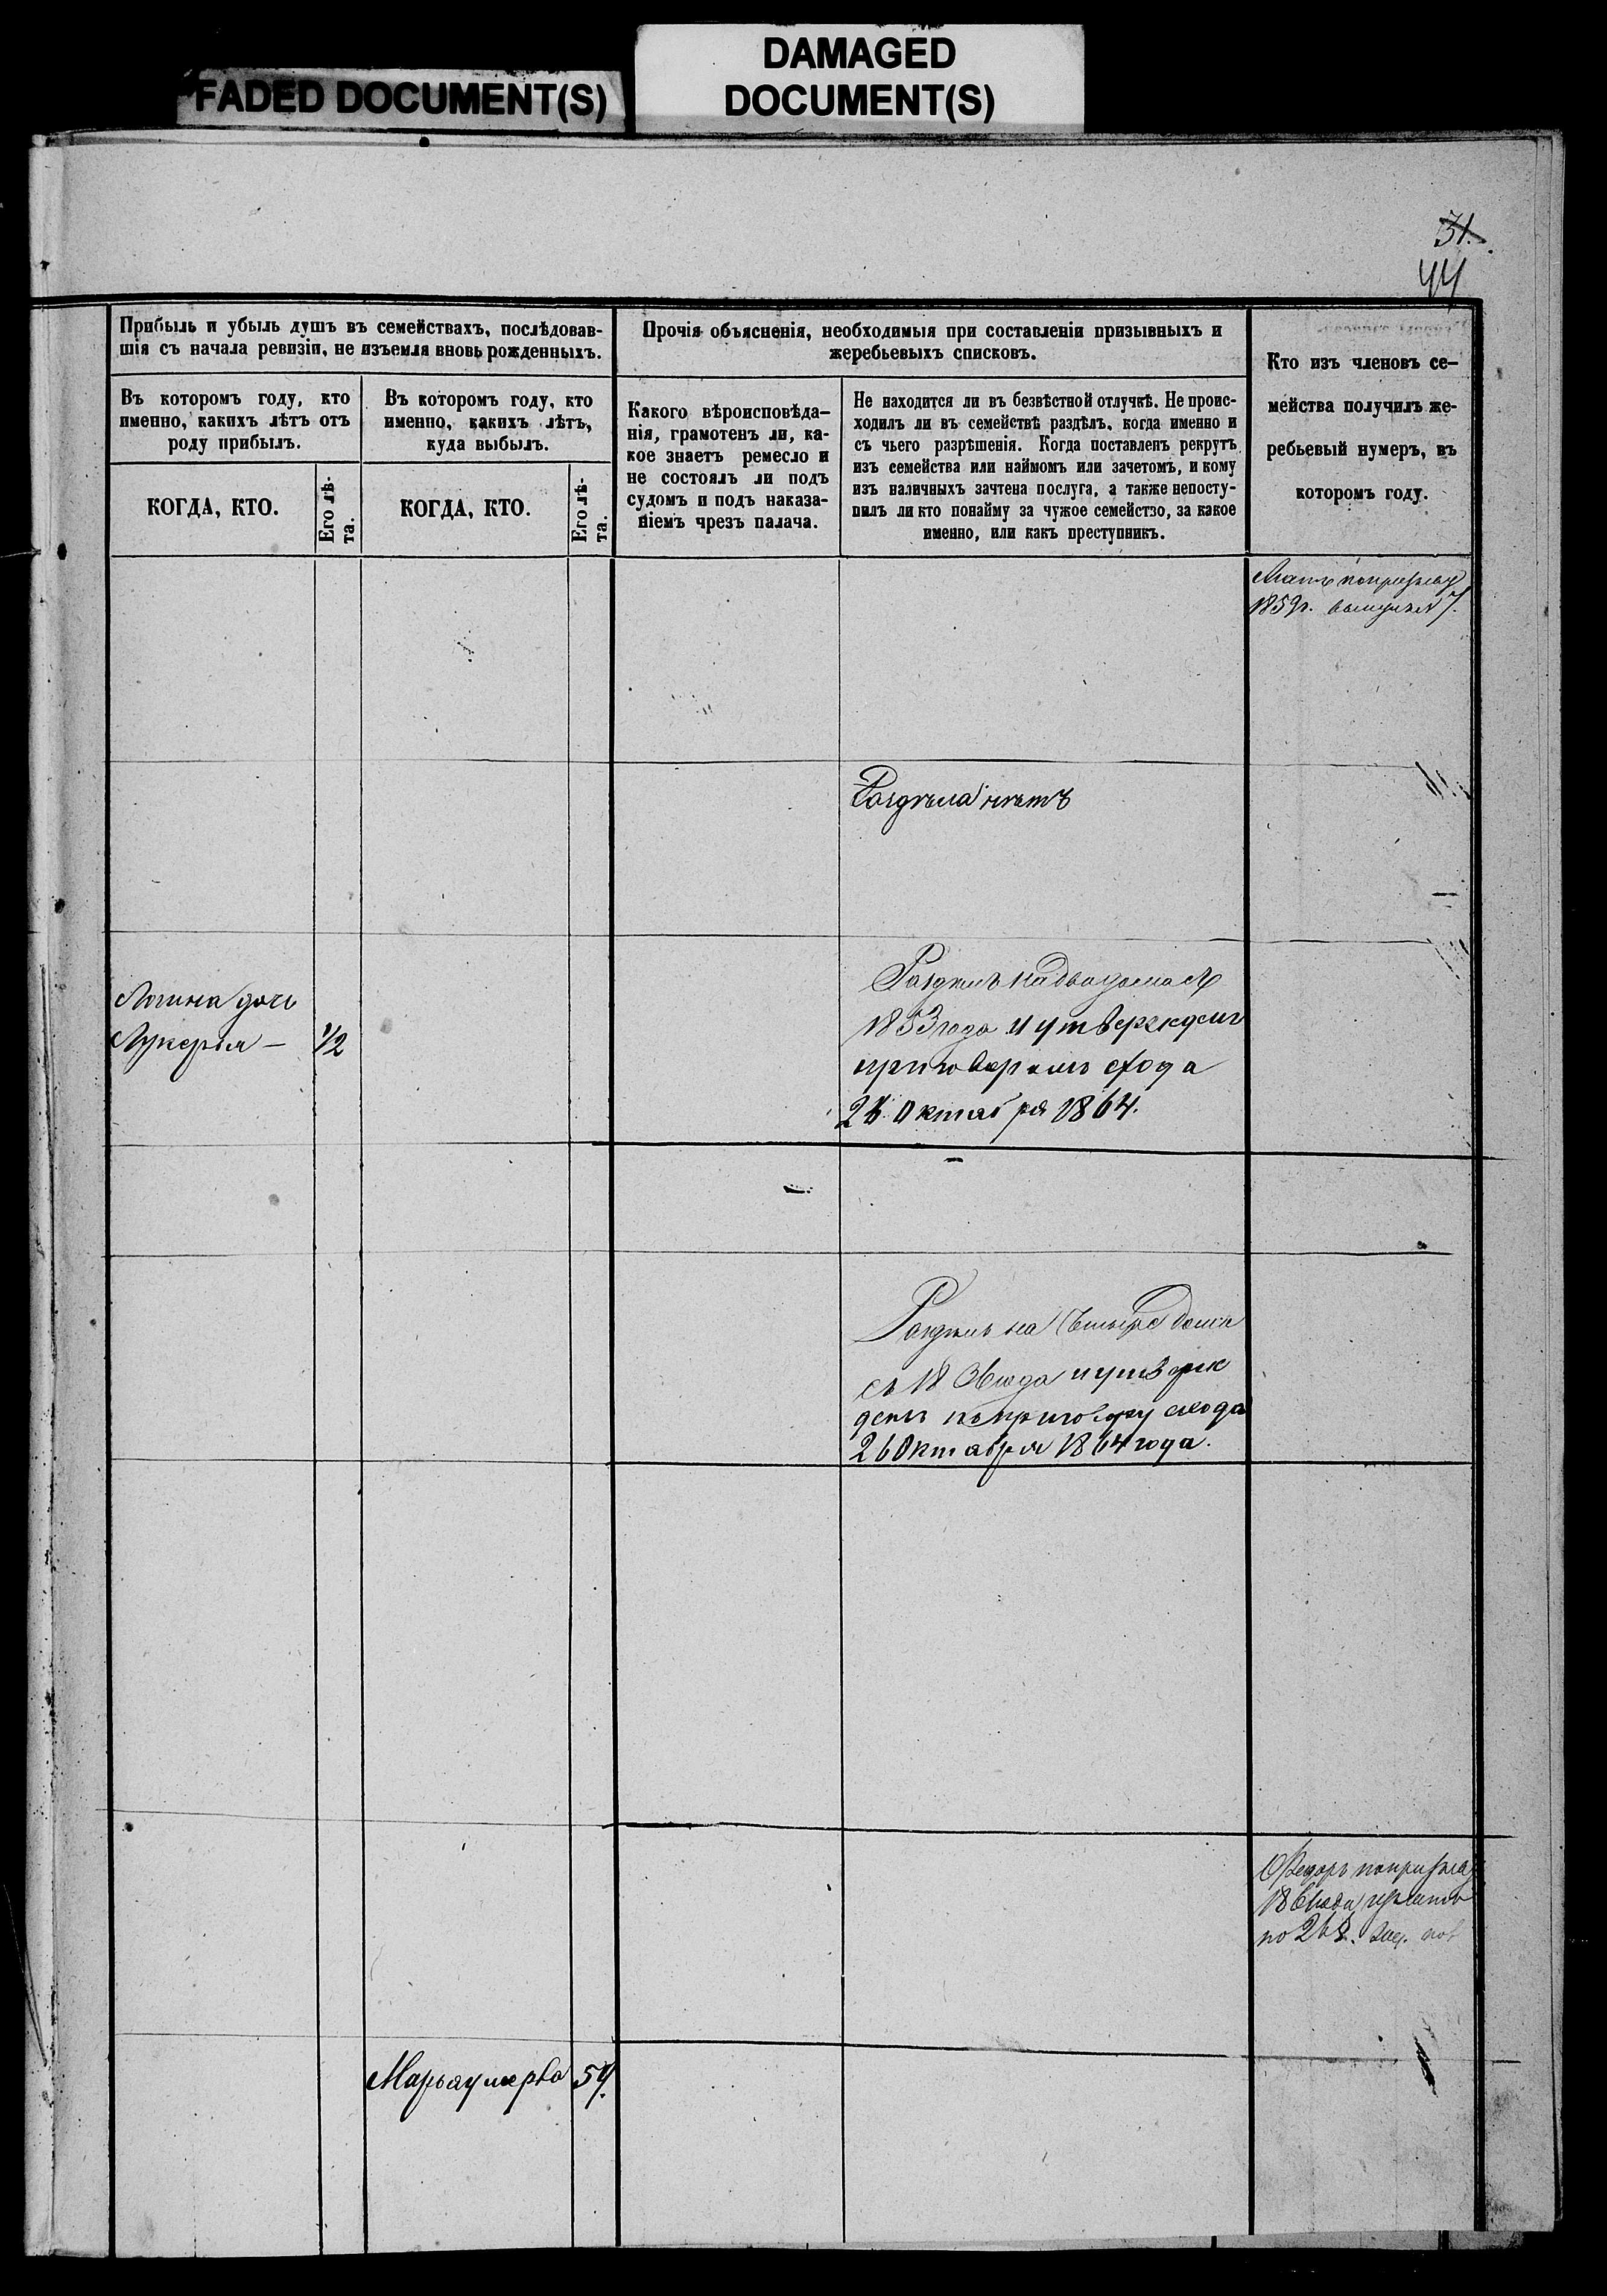 FADED DOCUMENT(S)
DAMAGED
DOCUMENT(S)
31.
44
Прибыль и убыль душъ въ семействахъ, послѣдовав-
шія съ начала ревизіи, не изъемля вновь рожденныхъ.
Въ которомъ году, кто
именно, какихъ лѣтъ отъ
роду прибылъ.
КОГДА, КТО.
Его лѣ-
та.
Въ которомъ году, кто
именно, какихъ лѣтъ,
куда выбылъ.
КОГДА, КТО.
Его лѣ-
та.
Прочія объясненія, необходимыя при составленіи призывныхъ и
жеребьевыхъ списковъ.
Какого вѣроисповѣда-
нія, грамотенъ ли, ка-
кое знаетъ ремесло и
не состоялъ ли подъ
судомъ и подъ наказа-
ніемъ чрезъ палача.
Не находится ли въ безвѣстной отлучкѣ. Не проис-
ходилъ ли въ семействѣ раздѣлъ, когда именно и
съ чьего разрѣшенія. Когда поставленъ рекрутъ
изъ семейства или наймомъ или зачетомъ, и кому
изъ наличныхъ зачтена послуга, а также непосту-
пилъ ли кто понайму за чужое семейство, за какое
именно, или какъ преступникъ.
Кто изъ членовъ се-
мейства получилъ же-
ребьевый нумеръ, въ
которомъ году.
1859г.
Раздѣла нѣтъ
Логина дочь
Лукерья — 1/2
Раздѣлъ на два дома съ
1853 года и утвержденъ
приговоромъ схода
Октабря 1864.
Раздѣлъ на четыре дома
съ 18 года и утверж
денъ по приговору схода
26 Октабря 1864 года.
Ѳедоръ по призыву
по
Марья умерла 54.